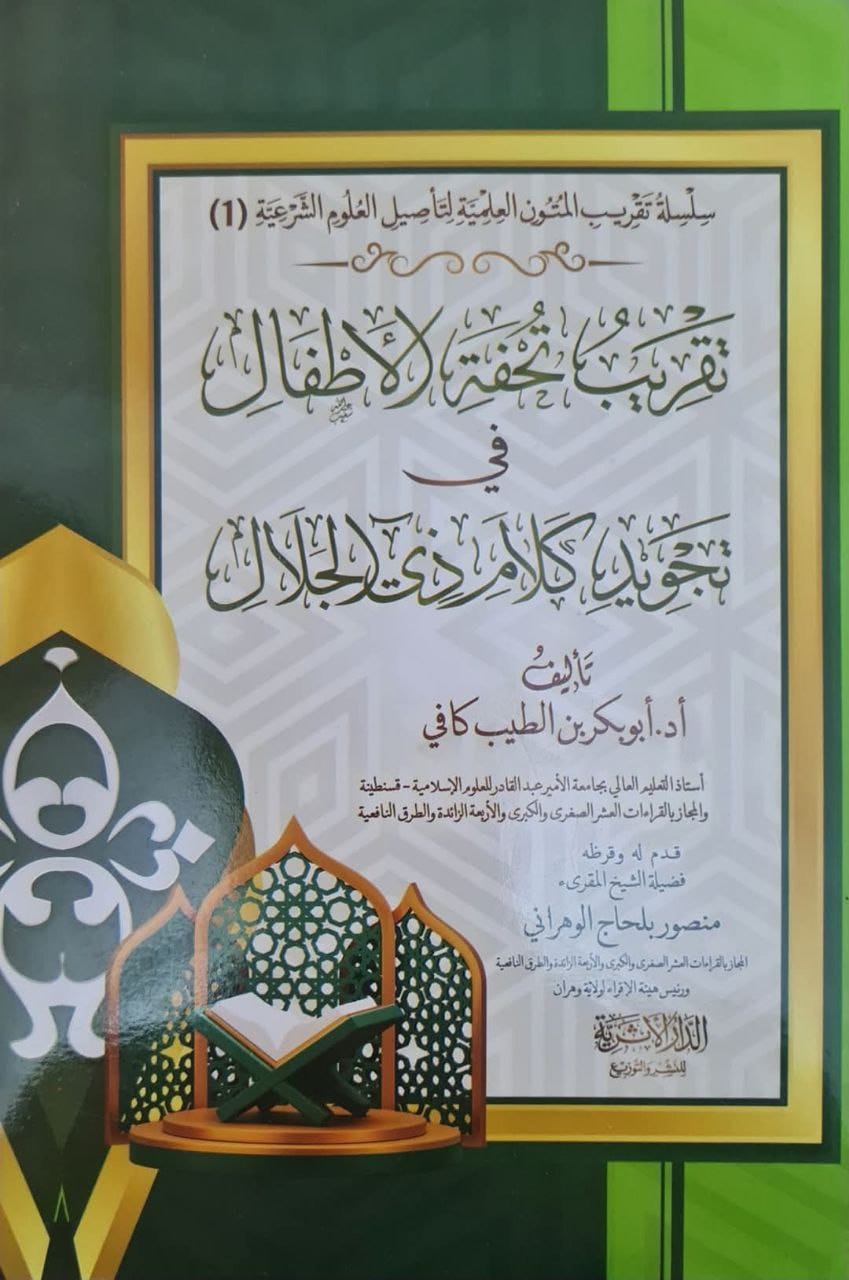 سِلْسِلَةُ تَقْرِيبِ المُتُونِ العِلْمِيَّةِ لِتَأْصِيلِ العُلُومِ الشَّرْعِيَّةِ (1)
تَقْرِيبُ تُحْفَةِ الأَطْفَالِ
في
تَجْوِيدِ كَلَامِ ذِي الجَلَالِ
تأليف
أ.د. أبو بكر بن الطيب كافي
أستاذ التعليم العالي بجامعة الأمير عبد القادر للعلوم الإسلامية - قسنطينة
والمجاز بالقراءات العشر الصغرى والكبرى والأربعة الزائدة والطرق النافعية
قدم له وقرظه
فضيلة الشيخ المقرىء
منصور بلحاج الوهراني
المجاز بالقراءات العشر الصغرى والكبرى والأربعة الزائدة والطرق النافعية
ورئيس هيئة الإقراء لولاية وهران
الدار الأثرية
للنشر والتوزيع